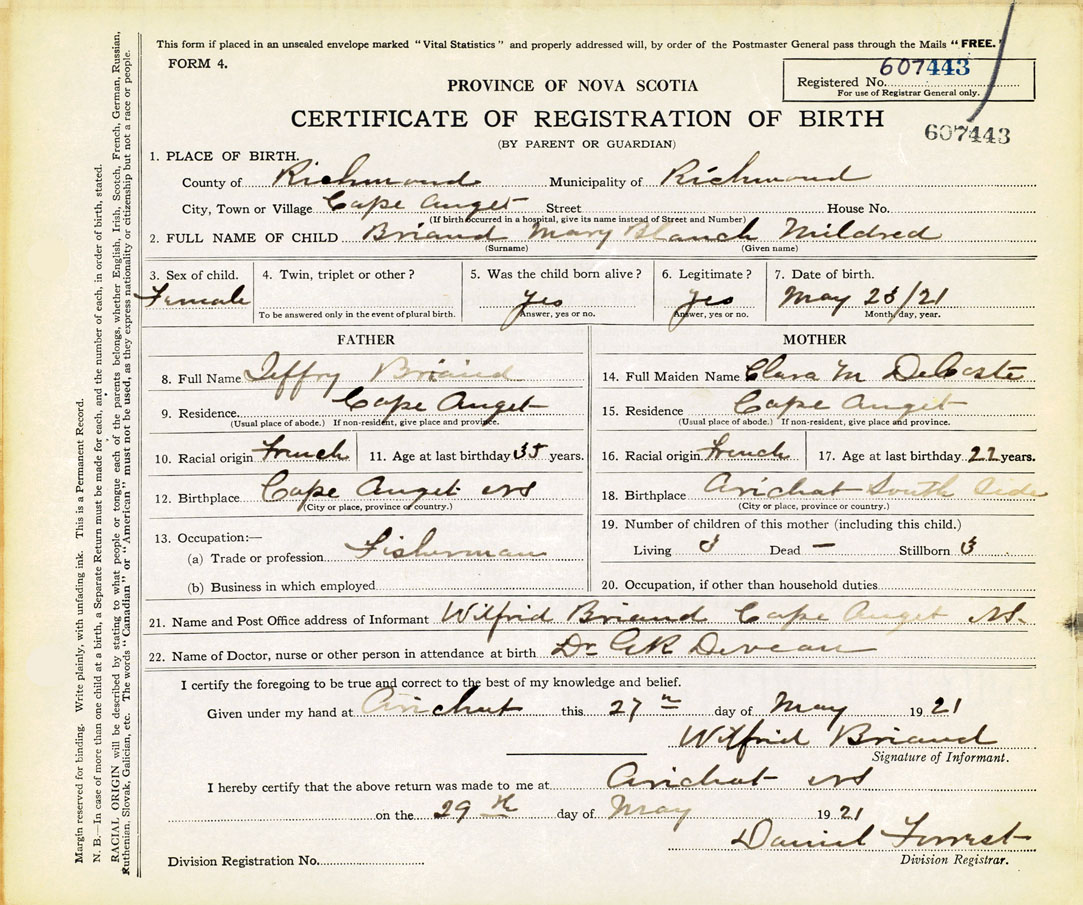 This form if placed in an unsealed envelope marked "Vital Statistics" and properly addressed will, by order of the Postmaster General pass through the Mails "FREE."
FORM 4.
Registered No. 607443
For use of Registrar General only.
PROVINCE OF NOVA SCOTIA
CERTIFICATE OF REGISTRATION OF BIRTH
607443
(BY PARENT OR GUARDIAN)
1. PLACE OF BIRTH.
County of Richmond Municipality of Richmond
City, Town or Village Cape Auget Street House No.
(If birth occurred in a hospital, give its name instead of Street and Number)
2. FULL NAME OF CHILD Briand Mary Blanch Mildred
(Surname) (Given name)
3. Sex of child. 4. Twin, triplet or other? 5. Was the child born alive? 6. Legitimate? 7. Date of birth.
Female yes yes May 23/21
To be answered only in the event of plural birth. Answer, yes or no. Answer, yes or no. Month, day, year.
FATHER MOTHER
8. Full Name Jeffry Briand 14. Full Maiden Name Clara M DeCoste
9. Residence. Cape Auget 15. Residence Cape Auget
(Usual place of abode.) If non-resident, give place and province. (Usual place of abode.) If non-resident, give place and province.
10. Racial origin French 11. Age at last birthday 35 years. 16. Racial origin French 17. Age at last birthday 22 years.
12. Birthplace Cape Auget NS 18. Birthplace Arichat South Side
(City or place, province or country.) (City or place, province or country.)
13. Occupation:— 19. Number of children of this mother (including this child.)
(a) Trade or profession Fisherman Living 3 Dead — Stillborn
(b) Business in which employed 20. Occupation, if other than household duties
21. Name and Post Office address of Informant Wilfrid Briand Cape Auget NS.
22. Name of Doctor, nurse or other person in attendance at birth Dr Deveau
I certify the foregoing to be true and correct to the best of my knowledge and belief.
Given under my hand at Arichat this 27th day of May 1921
Wilfrid Briand
Signature of Informant.
I hereby certify that the above return was made to me at Arichat NS
on the 29th day of May 1921
Daniel Forrest
Division Registration No. Division Registrar.
Margin reserved for binding. Write plainly, with unfading ink. This is a Permanent Record.
N. B.—In case of more than one child at a birth, a Separate Return must be made for each, and the number of each, in order of birth, stated.
RACIAL ORIGIN will be described by stating to what people or tongue each of the parents belongs, whether English, Irish, Scotch, French, German, Russian,
Ruthenian, Slovak, Galician, etc. The words "Canadian" or "American" must not be used, as they express nationality or citizenship but not a race or people.